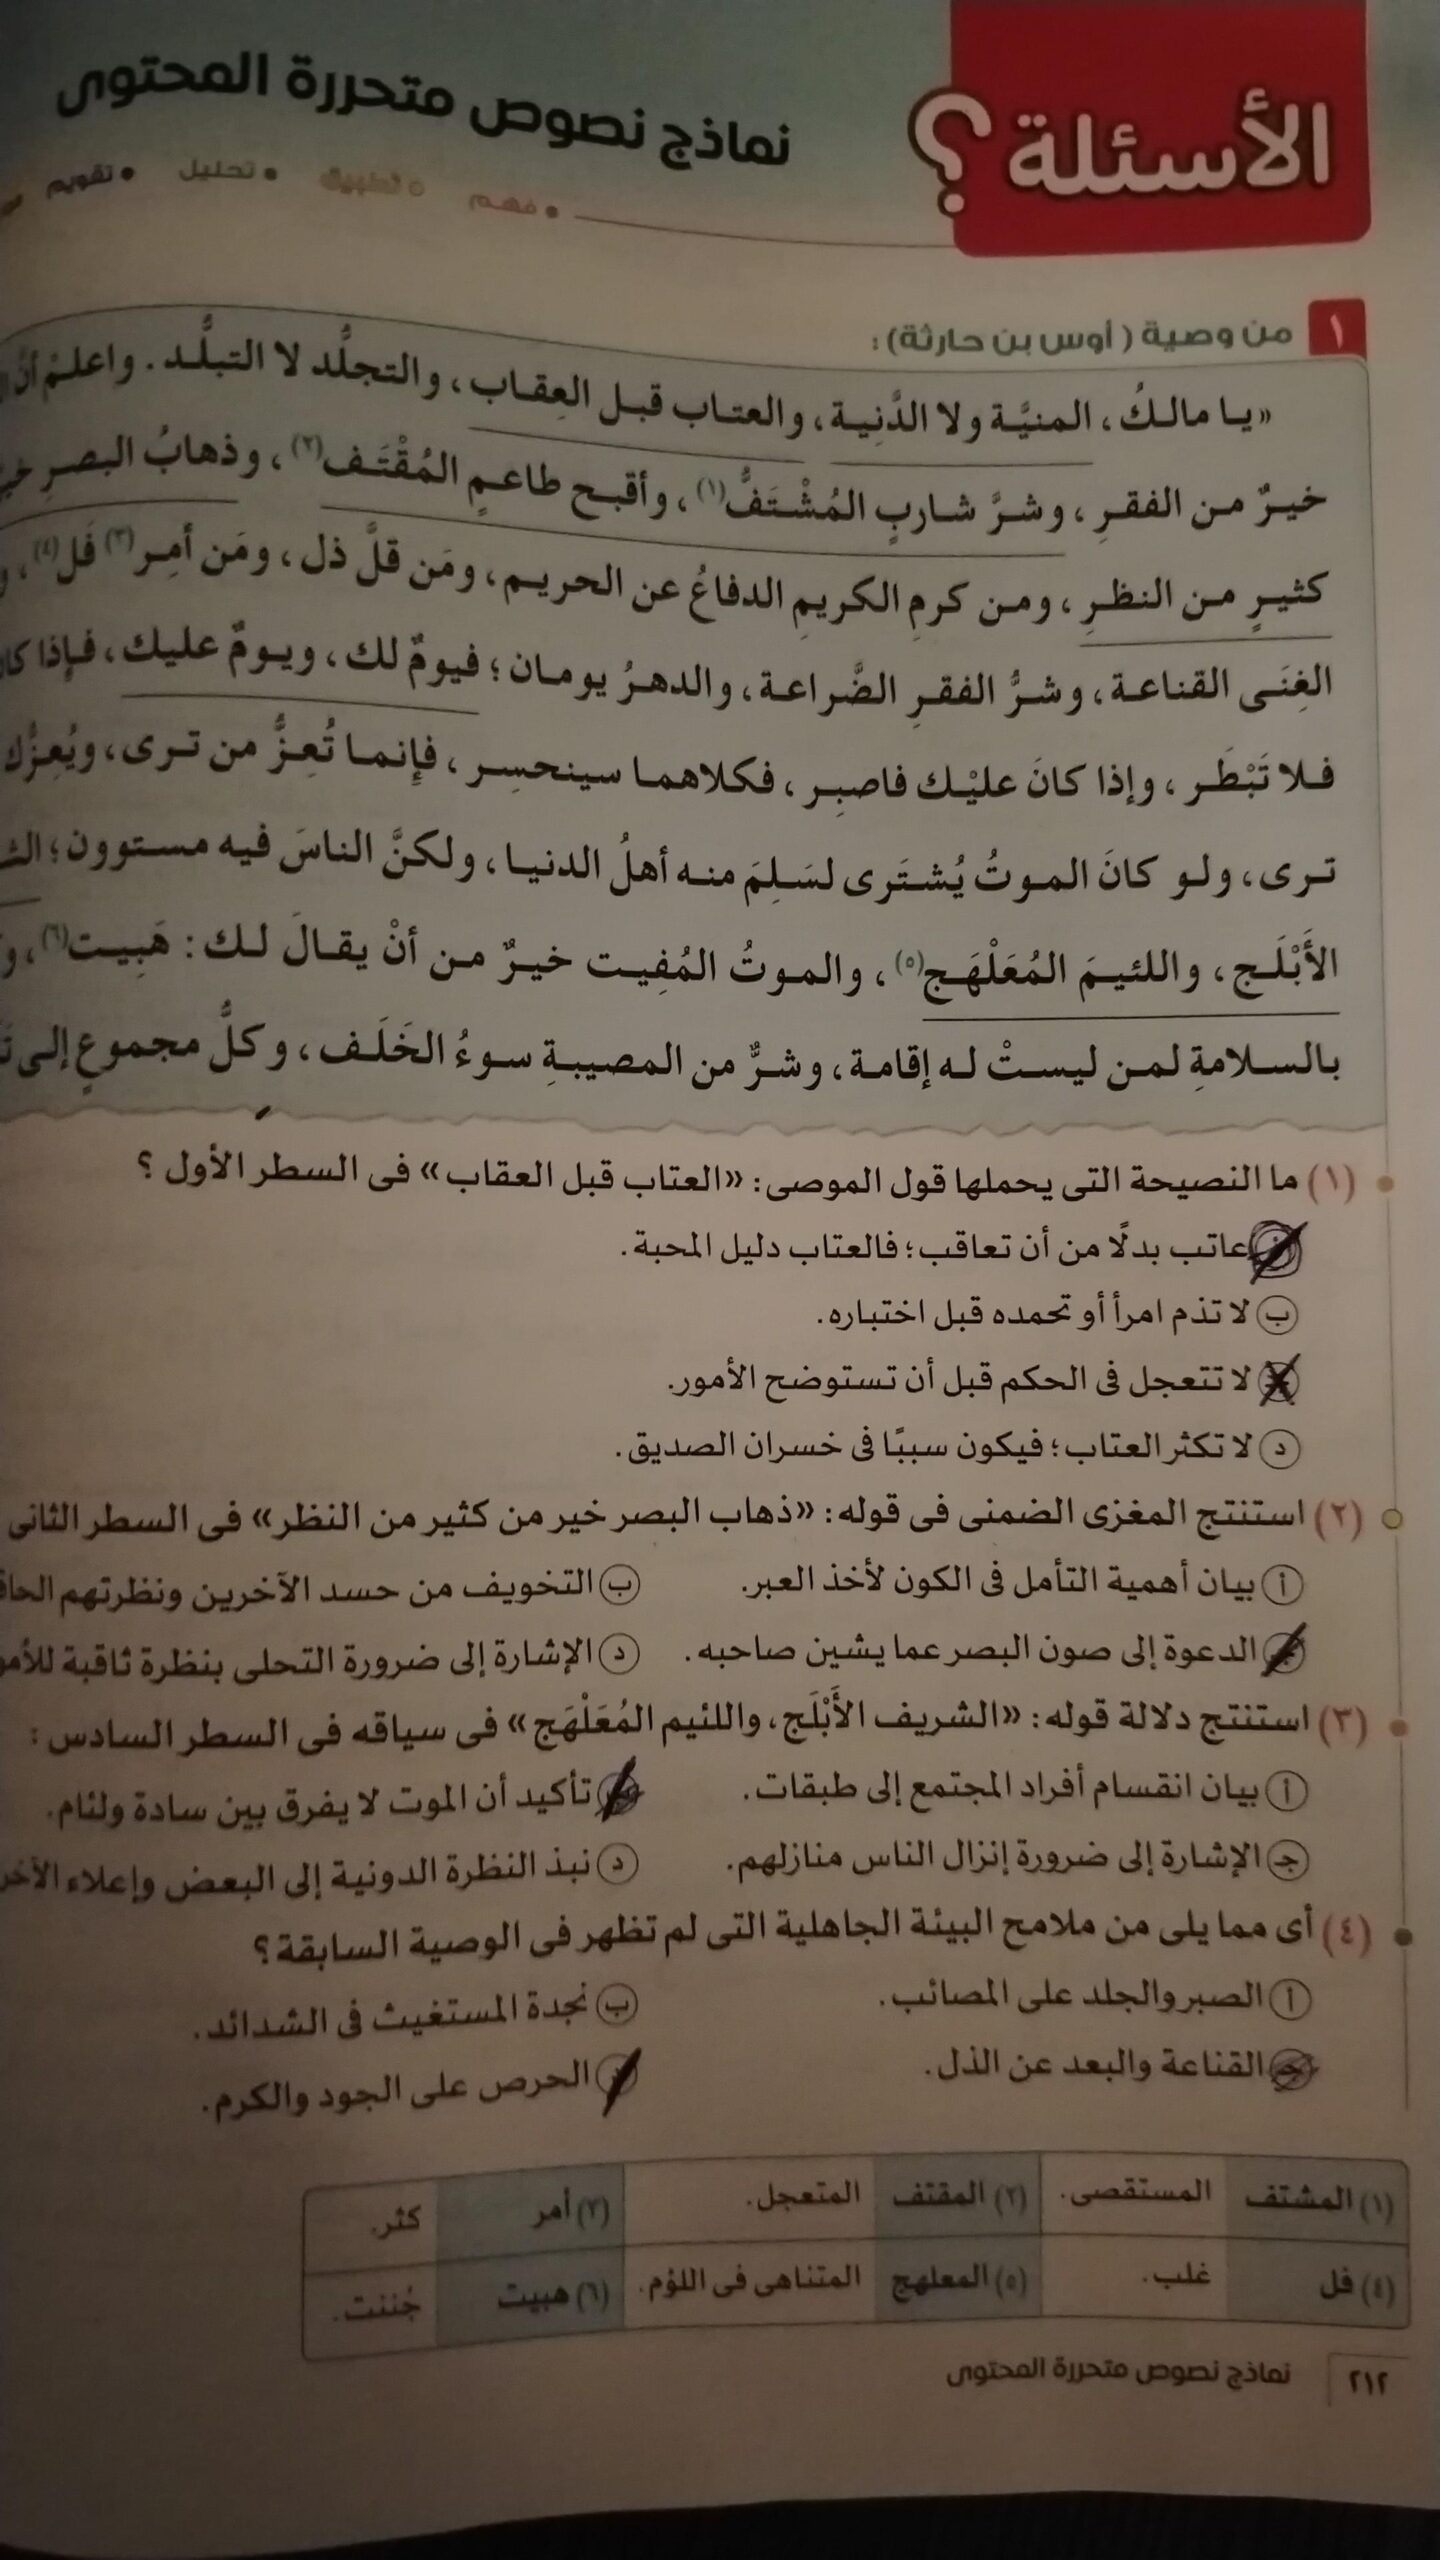 الأسئلة ؟
نماذج نصوص متحررة المحتوى
• فهم • تطبيق • تحليل • تقويم
١ من وصية (أوس بن حارثة):
«يا مالكُ، المنيَّة ولا الدَّنِية، والعتاب قبل العِقاب، والتجلُّد لا التبلُّد. واعلمْ أنَّ
خيرٌ من الفقرِ، وشرَّ شاربٍ المُشْتَفُّ(١)، وأقبح طاعمٍ المُقْتَف(٢)، وذهابُ البصرِ
كثيرٍ من النظرِ، ومن كرمِ الكريمِ الدفاعُ عن الحريم، ومَن قلَّ ذل، ومَن أمِر(٣) فَل(٤)،
الغِنَى القناعة، وشرُّ الفقرِ الضَّراعة، والدهرُ يومان؛ فيومٌ لك، ويومٌ عليك، فإذا
فلا تَبْطَر، وإذا كانَ عليْك فاصبِر، فكلاهما سينحسِر، فإنما تُعِزُّ من ترى، ويُعِزُّك
ترى، ولو كانَ الموتُ يُشتَرى لسَلِمَ منه أهلُ الدنيا، ولكنَّ الناسَ فيه مستوون؛
الأَبْلَج، واللئيمَ المُعَلْهَج(٥)، والموتُ المُفِيت خيرٌ من أنْ يقالَ لك: هَبِيت(٦)،
بالسلامةِ لمن ليستْ له إقامة، وشرٌّ من المصيبةِ سوءُ الخَلَف، وكلُّ مجموعٍ إلى
(١) ما النصيحة التى يحملها قول الموصى: «العتاب قبل العقاب» فى السطر الأول ؟
عاتب بدلًا من أن تعاقب؛ فالعتاب دليل المحبة.
ب لا تذم امرأ أو تحمده قبل اختباره.
لا تتعجل فى الحكم قبل أن تستوضح الأمور.
د لا تكثر العتاب؛ فيكون سببًا فى خسران الصديق.
(٢) استنتج المغزى الضمنى فى قوله: «ذهاب البصر خير من كثير من النظر» فى السطر الثانى
أ بيان أهمية التأمل فى الكون لأخذ العبر. ب التخويف من حسد الآخرين ونظرتهم
الدعوة إلى صون البصر عما يشين صاحبه. د الإشارة إلى ضرورة التحلى بنظرة ثاقبة
(٣) استنتج دلالة قوله: «الشريف الأَبْلَج، واللئيم المُعَلْهَج» فى سياقه فى السطر السادس:
أ بيان انقسام أفراد المجتمع إلى طبقات. تأكيد أن الموت لا يفرق بين سادة ولئام.
جـ الإشارة إلى ضرورة إنزال الناس منازلهم. د نبذ النظرة الدونية إلى البعض وإعلاء
(٤) أى مما يلى من ملامح البيئة الجاهلية التى لم تظهر فى الوصية السابقة؟
أ الصبر والجلد على المصائب. ب نجدة المستغيث فى الشدائد.
جـ القناعة والبعد عن الذل. الحرص على الجود والكرم.
(١) المشتف المستقصى. (٢) المقتف المتعجل. (٣) أمر كثر.
(٤) فل غلب. (٥) المعلهج المتناهى فى اللؤم. (٦) هبيت جُننت.
٢١٢ نماذج نصوص متحررة المحتوى